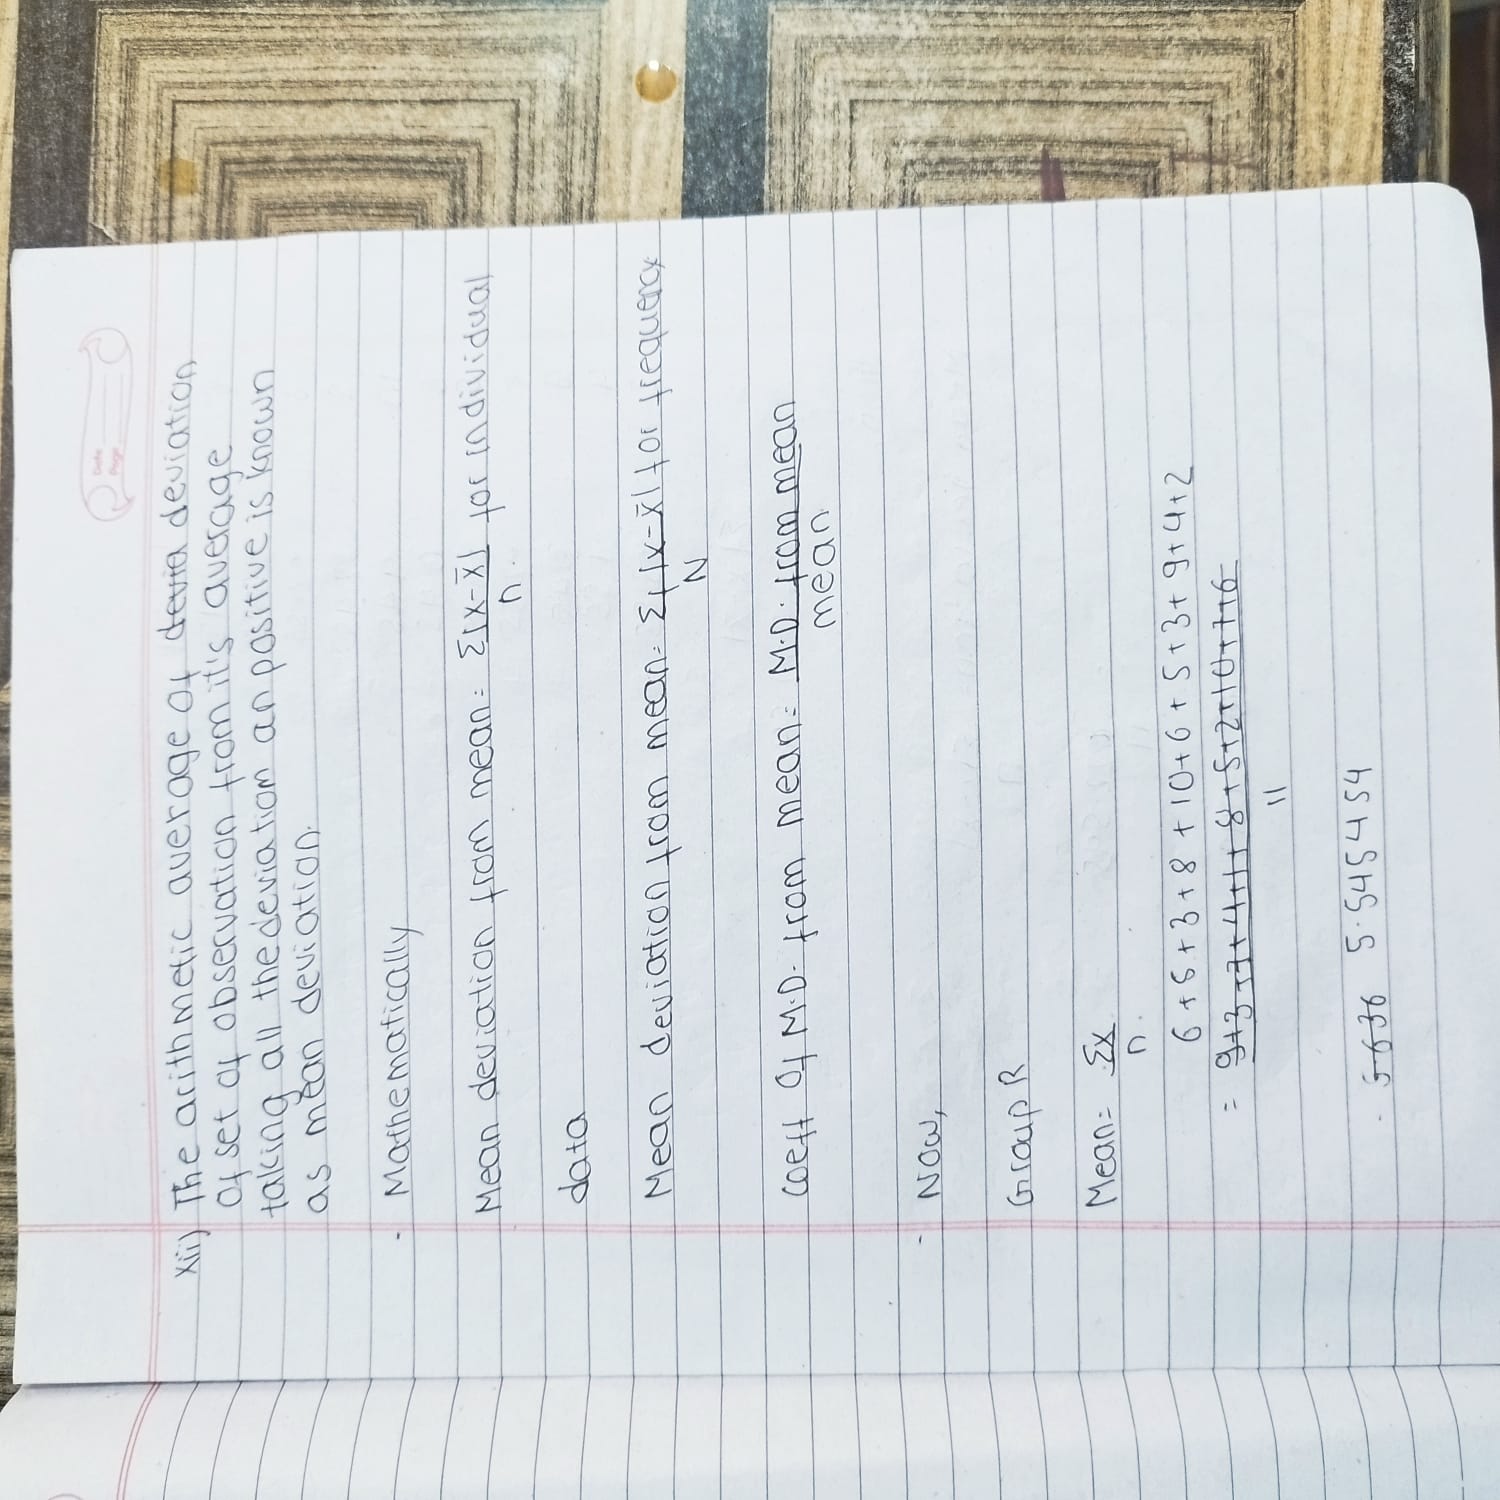 Date
Page
xii) The arithmetic average of devia deviation
of set of observation from it's average
taking all the deviation an positive is known
as mean deviation.
- Mathematically
Mean deviation from mean = Σ|x-x̄| for individual
n
data
Mean deviation from mean = Σf|x-x̄| for frequency
N
coeff of M.D. from mean = M.D. from mean
mean
- Now,
Group R
Mean = Σx
n.
6+5+3+8+10+6+5+3+9+4+2
= 9+3+7+4+1+8+5+2+10+7+6
11
5636 5.545454